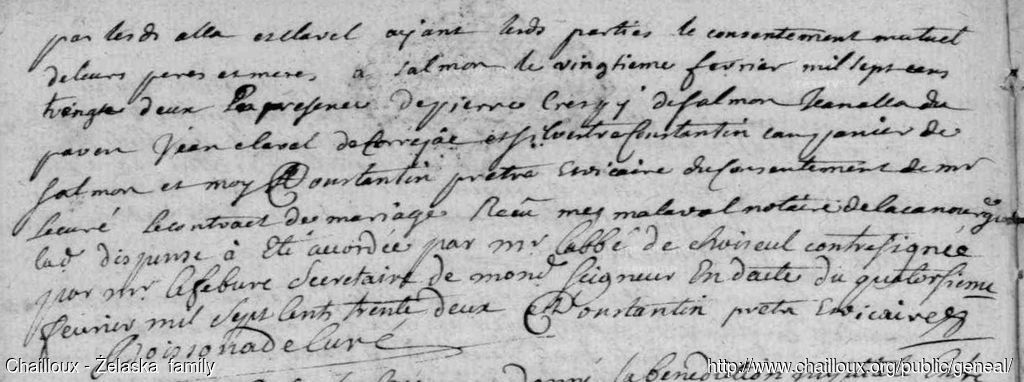 par lesds alla et clavel ayant lesds parties le consentement mutuel
de leurs peres et meres a salmon le vingtieme fevrier mil sept cens
trente deux En presence de pierre Crespy de Salmon Jean alla du
paven Jean clavel de Correjac et silvestre Constantin campanier de
salmon et moy Constantin pretre et vicaire du Consentement de mr
le curé le contract de mariage Receu mes malaval notaire de la canourgue
lad. dispense à Eté accordée par mr. l'abbé de choiseul contresignée
par mr. lefebure Secretaire de mond. Seigneur En datte du quatorsieme
fevrier mil sept cents trente deux Constantin pretre et vicaire
Boissonade Curé
la benediction
Chailloux - Želaska family
http://www.chailloux.org/public/geneal/